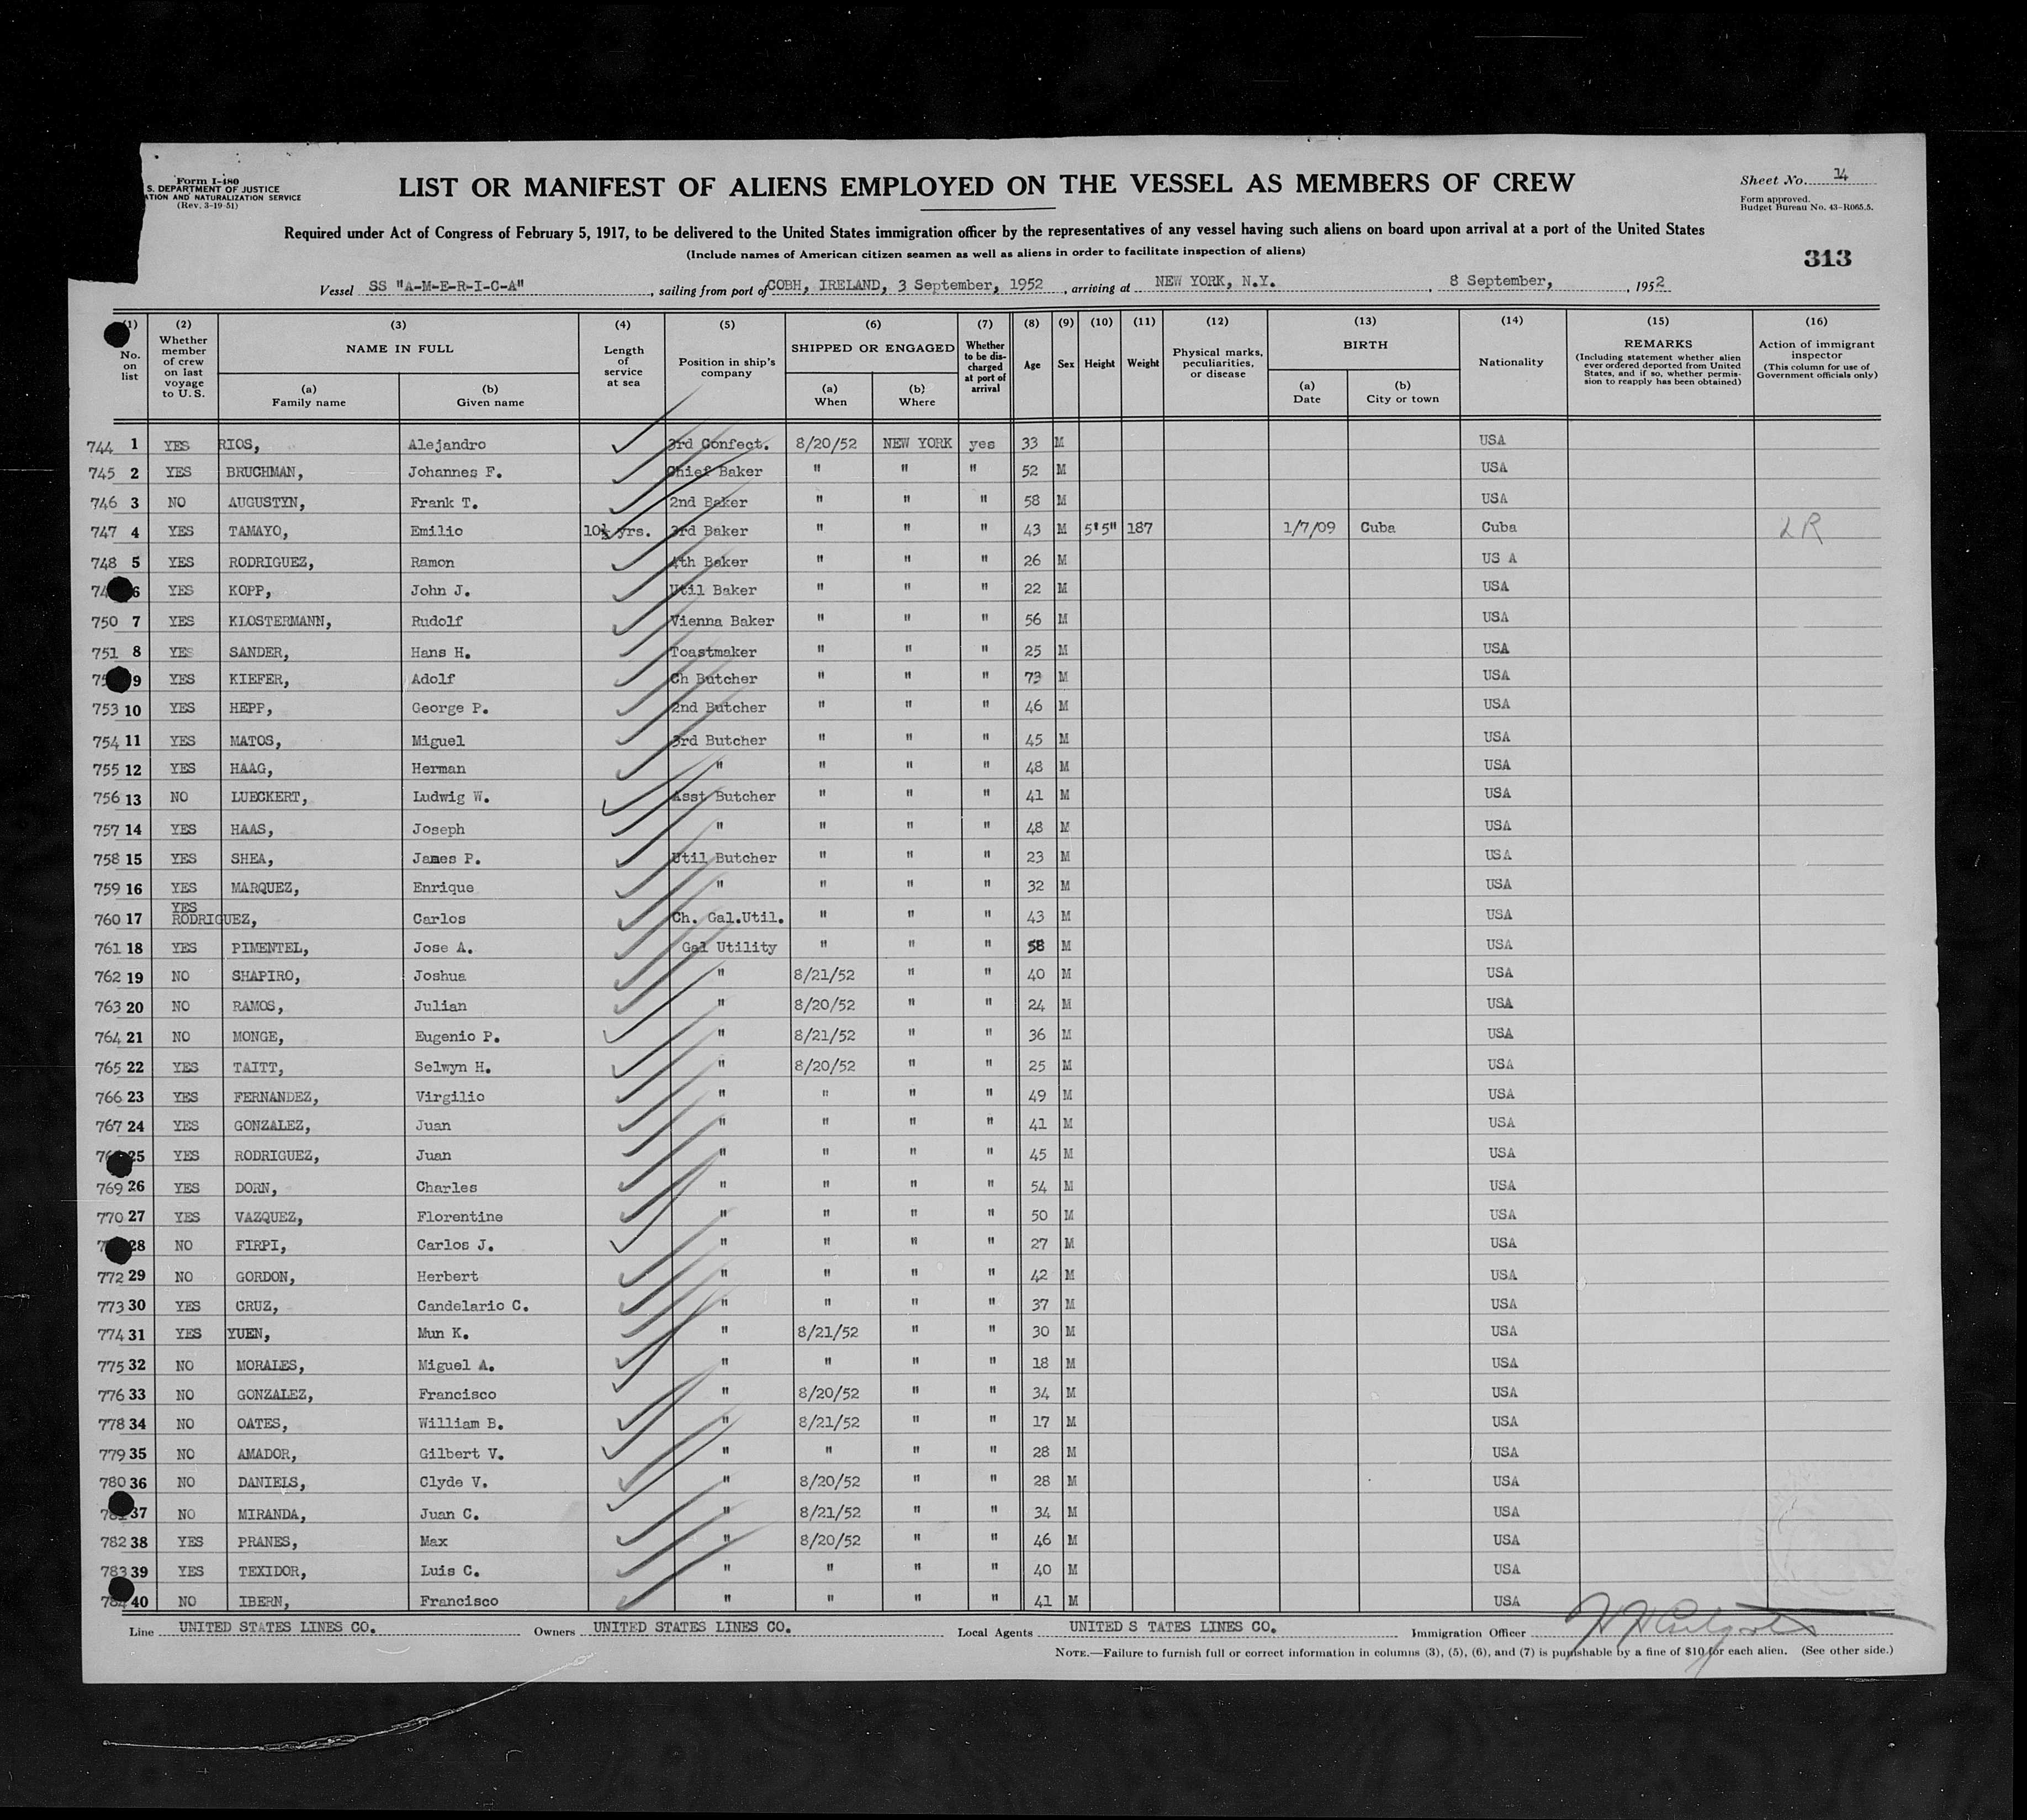 Form I-480
S. DEPARTMENT OF JUSTICE
ATION AND NATURALIZATION SERVICE
(Rev. 3-19-51)
LIST OR MANIFEST OF ALIENS EMPLOYED ON THE VESSEL AS MEMBERS OF CREW
Sheet No. 14
Form approved.
Budget Bureau No. 43-R065.5.
Required under Act of Congress of February 5, 1917, to be delivered to the United States immigration officer by the representatives of any vessel having such aliens on board upon arrival at a port of the United States
(Include names of American citizen seamen as well as aliens in order to facilitate inspection of aliens)
313
Vessel SS "A-M-E-R-I-C-A", sailing from port of COBH, IRELAND, 3 September, 1952, arriving at NEW YORK, N.Y., 8 September, 1952
(1) No. on list (2) Whether member of crew on last voyage to U.S. (3) NAME IN FULL (a) Family name (b) Given name (4) Length of service at sea (5) Position in ship's company (6) SHIPPED OR ENGAGED (a) When (b) Where (7) Whether to be discharged at port of arrival (8) Age (9) Sex (10) Height (11) Weight (12) Physical marks, peculiarities, or disease (13) BIRTH (a) Date (b) City or town (14) Nationality (15) REMARKS (Including statement whether alien ever ordered deported from United States, and if so, whether permission to reapply has been obtained) (16) Action of immigrant inspector (This column for use of Government officials only)
744 1 YES RIOS, Alejandro 3rd Confect. 8/20/52 NEW YORK yes 33 M USA
745 2 YES BRUCHMAN, Johannes F. Chief Baker " " " 52 M USA
746 3 NO AUGUSTYN, Frank T. 2nd Baker " " " 58 M USA
747 4 YES TAMAYO, Emilio 10½ yrs. 3rd Baker " " " 43 M 5'5" 187 1/7/09 Cuba Cuba LR
748 5 YES RODRIGUEZ, Ramon 4th Baker " " " 26 M US A
6 YES KOPP, John J. Util Baker " " " 22 M USA
750 7 YES KLOSTERMANN, Rudolf Vienna Baker " " " 56 M USA
751 8 YES SANDER, Hans H. Toastmaker " " " 25 M USA
9 YES KIEFER, Adolf Ch Butcher " " " 73 M USA
753 10 YES HEPP, George P. 2nd Butcher " " " 46 M USA
754 11 YES MATOS, Miguel 3rd Butcher " " " 45 M USA
755 12 YES HAAG, Herman " " " " 48 M USA
756 13 NO LUECKERT, Ludwig W. Asst Butcher " " " 41 M USA
757 14 YES HAAS, Joseph " " " " 48 M USA
758 15 YES SHEA, James P. Util Butcher " " " 23 M USA
759 16 YES MARQUEZ, Enrique " " " " 32 M USA
760 17 YES RODRIGUEZ, Carlos Ch. Gal.Util. " " " 43 M USA
761 18 YES PIMENTEL, Jose A. Gal Utility " " " 58 M USA
762 19 NO SHAPIRO, Joshua " 8/21/52 " " 40 M USA
763 20 NO RAMOS, Julian " 8/20/52 " " 24 M USA
764 21 NO MONGE, Eugenio P. " 8/21/52 " " 36 M USA
765 22 YES TAITT, Selwyn H. " 8/20/52 " " 25 M USA
766 23 YES FERNANDEZ, Virgilio " " " " 49 M USA
767 24 YES GONZALEZ, Juan " " " " 41 M USA
25 YES RODRIGUEZ, Juan " " " " 45 M USA
769 26 YES DORN, Charles " " " " 54 M USA
770 27 YES VAZQUEZ, Florentine " " " " 50 M USA
28 NO FIRPI, Carlos J. " " " " 27 M USA
772 29 NO GORDON, Herbert " " " " 42 M USA
773 30 YES CRUZ, Candelario C. " " " " 37 M USA
774 31 YES YUEN, Mun K. " 8/21/52 " " 30 M USA
775 32 NO MORALES, Miguel A. " " " " 18 M USA
776 33 NO GONZALEZ, Francisco " 8/20/52 " " 34 M USA
778 34 NO OATES, William B. " 8/21/52 " " 17 M USA
779 35 NO AMADOR, Gilbert V. " " " " 28 M USA
780 36 NO DANIELS, Clyde V. " 8/20/52 " " 28 M USA
37 NO MIRANDA, Juan C. " 8/21/52 " " 34 M USA
782 38 YES PRANES, Max " 8/20/52 " " 46 M USA
783 39 YES TEXIDOR, Luis C. " " " " 40 M USA
40 NO IBERN, Francisco " " " " 41 M USA
Line UNITED STATES LINES CO. Owners UNITED STATES LINES CO. Local Agents UNITED S TATES LINES CO. Immigration Officer
NOTE.—Failure to furnish full or correct information in columns (3), (5), (6), and (7) is punishable by a fine of $10 for each alien. (See other side.)